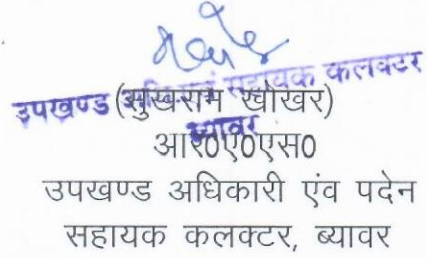 उपखण्ड अधि एवं सहायक कलक्टर
ब्यावर
(सुखराम खोखर)
आर0ए0एस0
उपखण्ड अधिकारी एंव पदेन
सहायक कलक्टर, ब्यावर